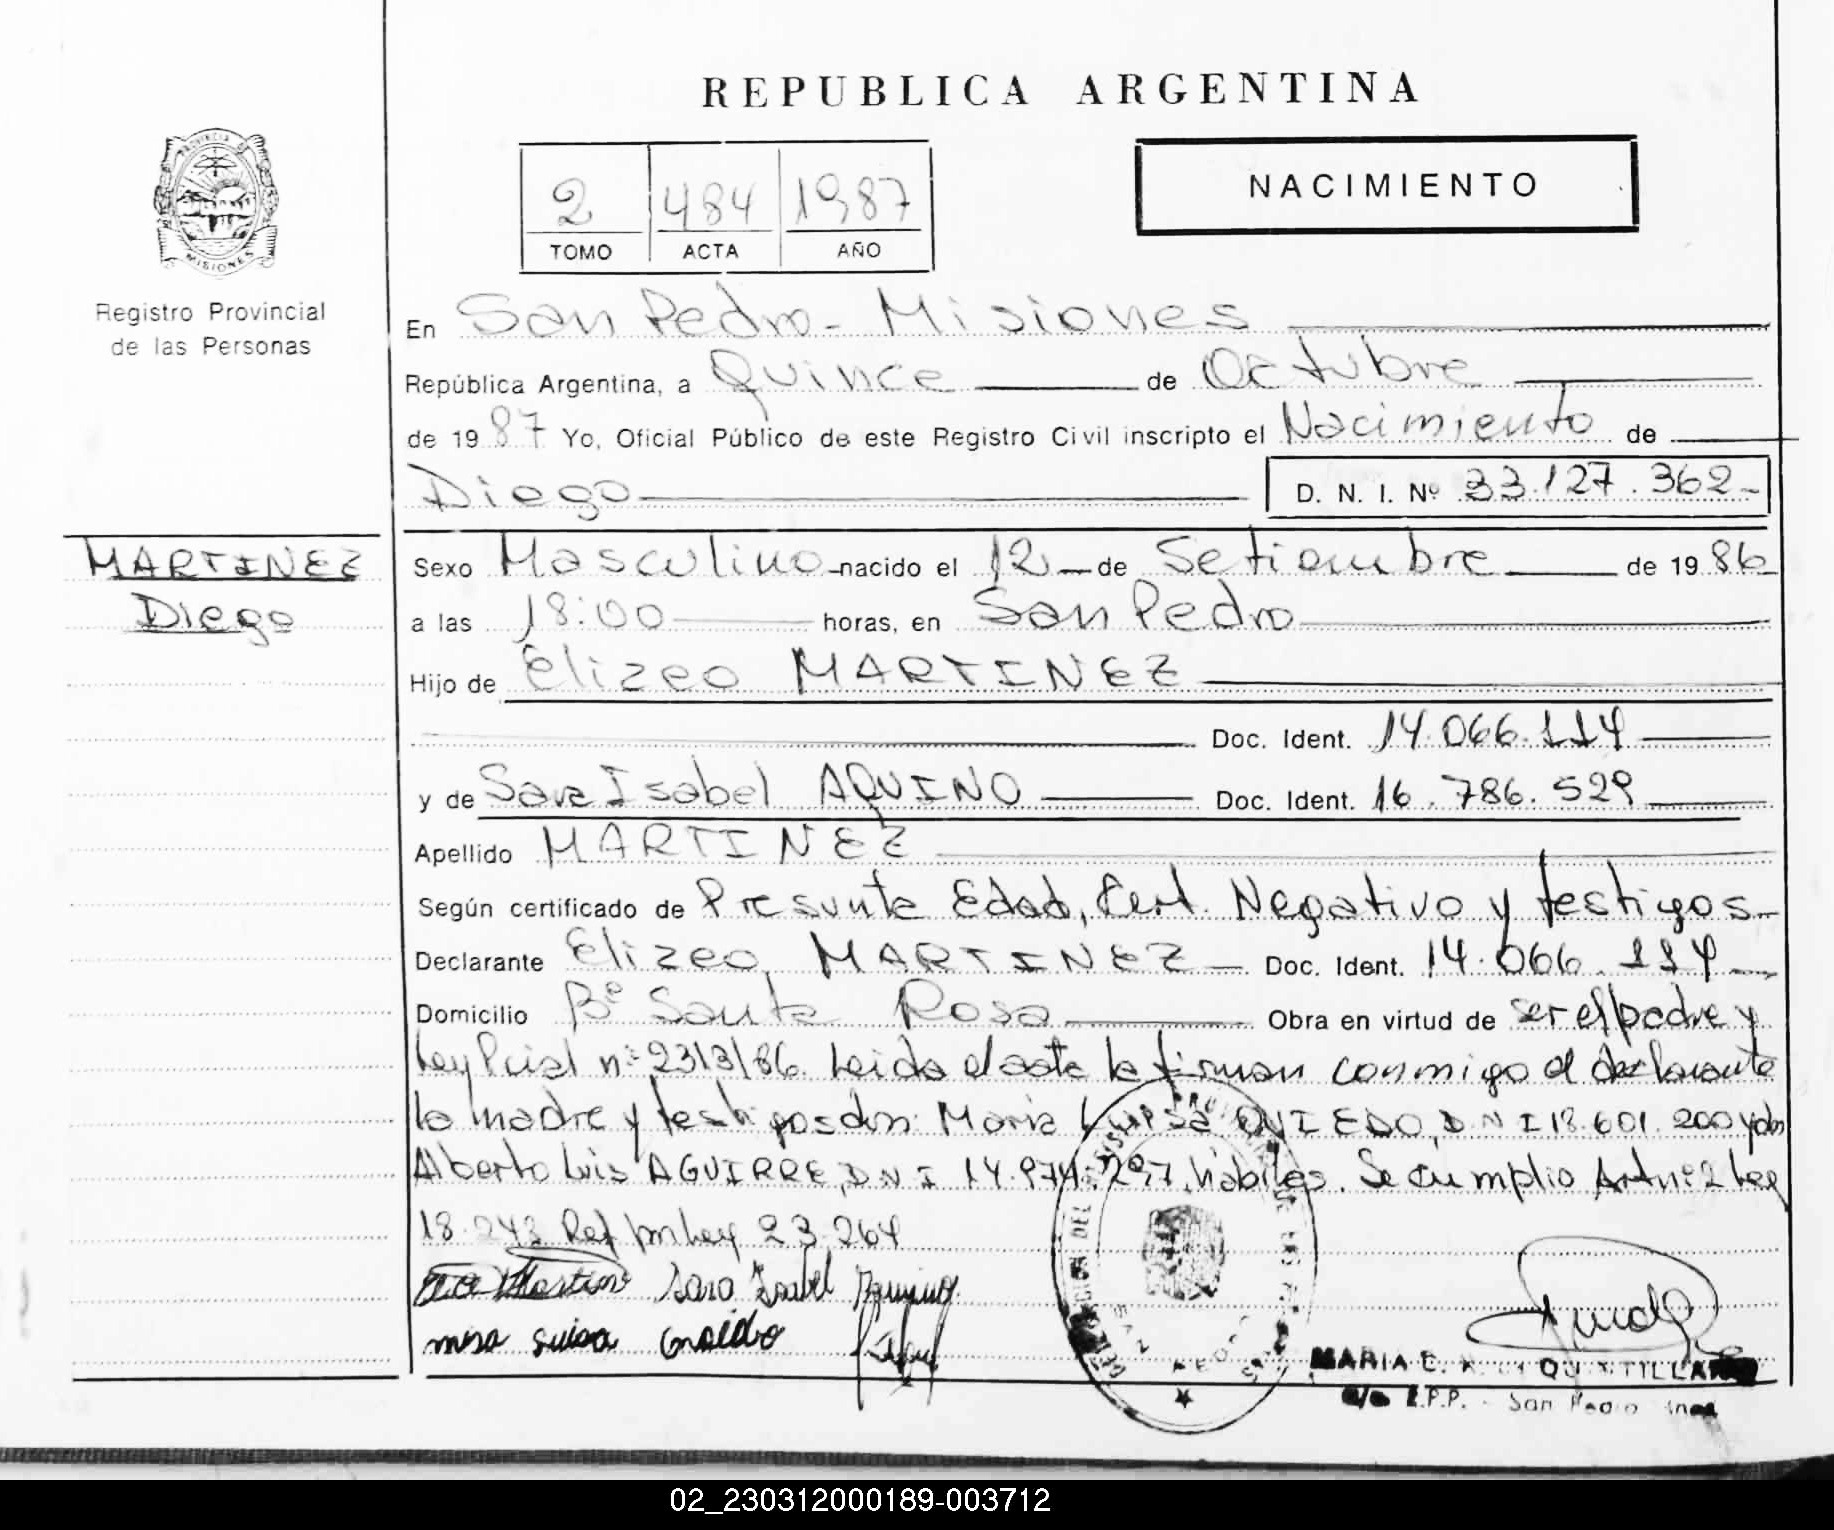 REPUBLICA ARGENTINA
PROVINCIA DE
MISIONES
Registro Provincial
de las Personas
2 484 1987
TOMO ACTA AÑO
NACIMIENTO
En San Pedro - Misiones
República Argentina, a Quince de Octubre
de 1987 Yo, Oficial Público de este Registro Civil inscripto el Nacimiento de
Diego D. N. I. Nº 33.127.362
MARTINEZ
Diego
Sexo Masculino nacido el 12 de Setiembre de 1986
a las 18:00 horas, en San Pedro
Hijo de Elizeo MARTINEZ
Doc. Ident. 14.066.114
y de Sara Isabel AQUINO Doc. Ident. 16.786.529
Apellido MARTINEZ
Según certificado de Presunta Edad, Cert. Negativo y testigos
Declarante Elizeo MARTINEZ Doc. Ident. 14.066.114
Domicilio Bº Santa Rosa Obra en virtud de ser el padre y
Ley Pcial nº 2313/86. Leida el acta la firman conmigo el declarante
la madre y testigos don: Maria Luisa OVIEDO, D N I 18.601.200 y don
Alberto Luis AGUIRRE, D N I 14.974.297, hábiles. Se cumplio Art nº 2 Ley
18.248 Ref por Ley 23.264
Martine Sara Isabel Aquino
MARIA E. QUINTILLAN
E.P.P. - San Pedro
02_230312000189-003712